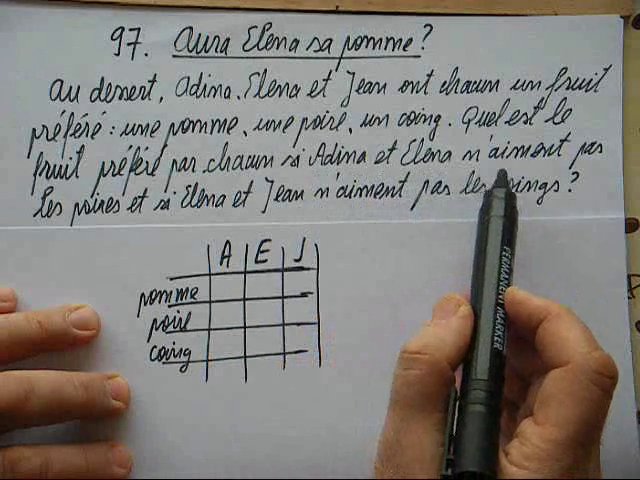 97. Aura Elena sa pomme ?
Au dessert, Adina, Elena et Jean ont chacun un fruit
préféré : une pomme, une poire, un coing. Quel est le
fruit préféré par chacun si Adina et Elena n'aiment pas
les poires et si Elena et Jean n'aiment pas les ings ?
A E J
pomme
poire
coing
PERMANENT MARKER